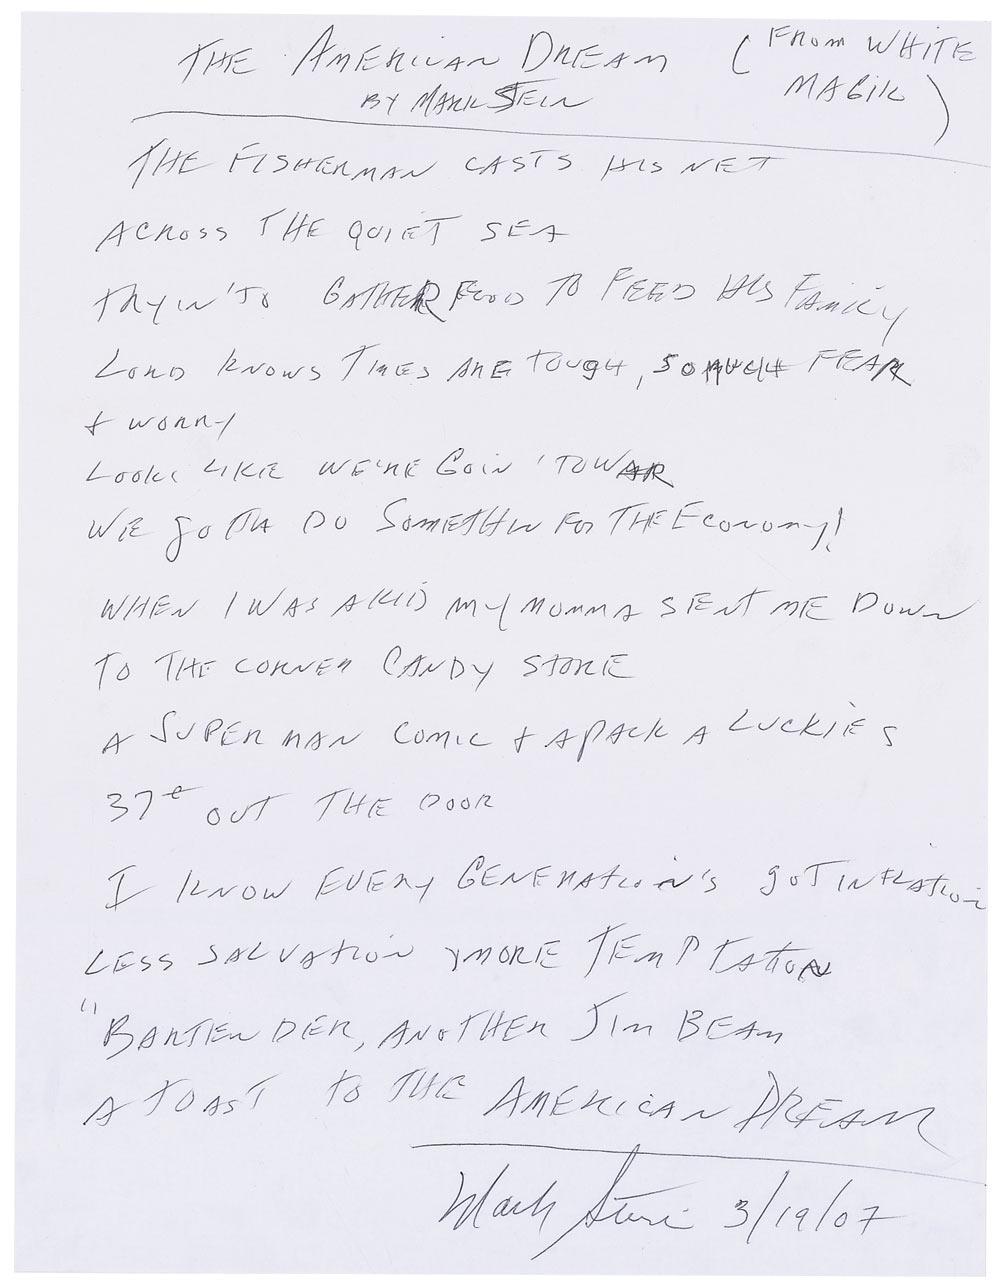 THE AMERICAN DREAM (FROM WHITE
MAGIK)
BY MARK STEIN
THE FISHERMAN CASTS HIS NET
ACROSS THE QUIET SEA
TRYIN' TO GATHER FOOD TO FEED HIS FAMILY
LORD KNOWS TIMES ARE TOUGH, SO MUCH FEAR
+ WORRY
LOOKS LIKE WE'RE GOIN' TO WAR
WE GOTTA DO SOMETHIN FOR THE ECONOMY!
WHEN I WAS A KID MY MOMMA SENT ME DOWN
TO THE CORNER CANDY STORE
A SUPERMAN COMIC + A PACK A LUCKIES
37¢ OUT THE DOOR
I KNOW EVERY GENERATION'S GOT INFLATION
LESS SALVATION + MORE TEMPTATION
"BARTENDER, ANOTHER JIM BEAM
A TOAST TO THE AMERICAN DREAM
Mark Stein 3/19/07